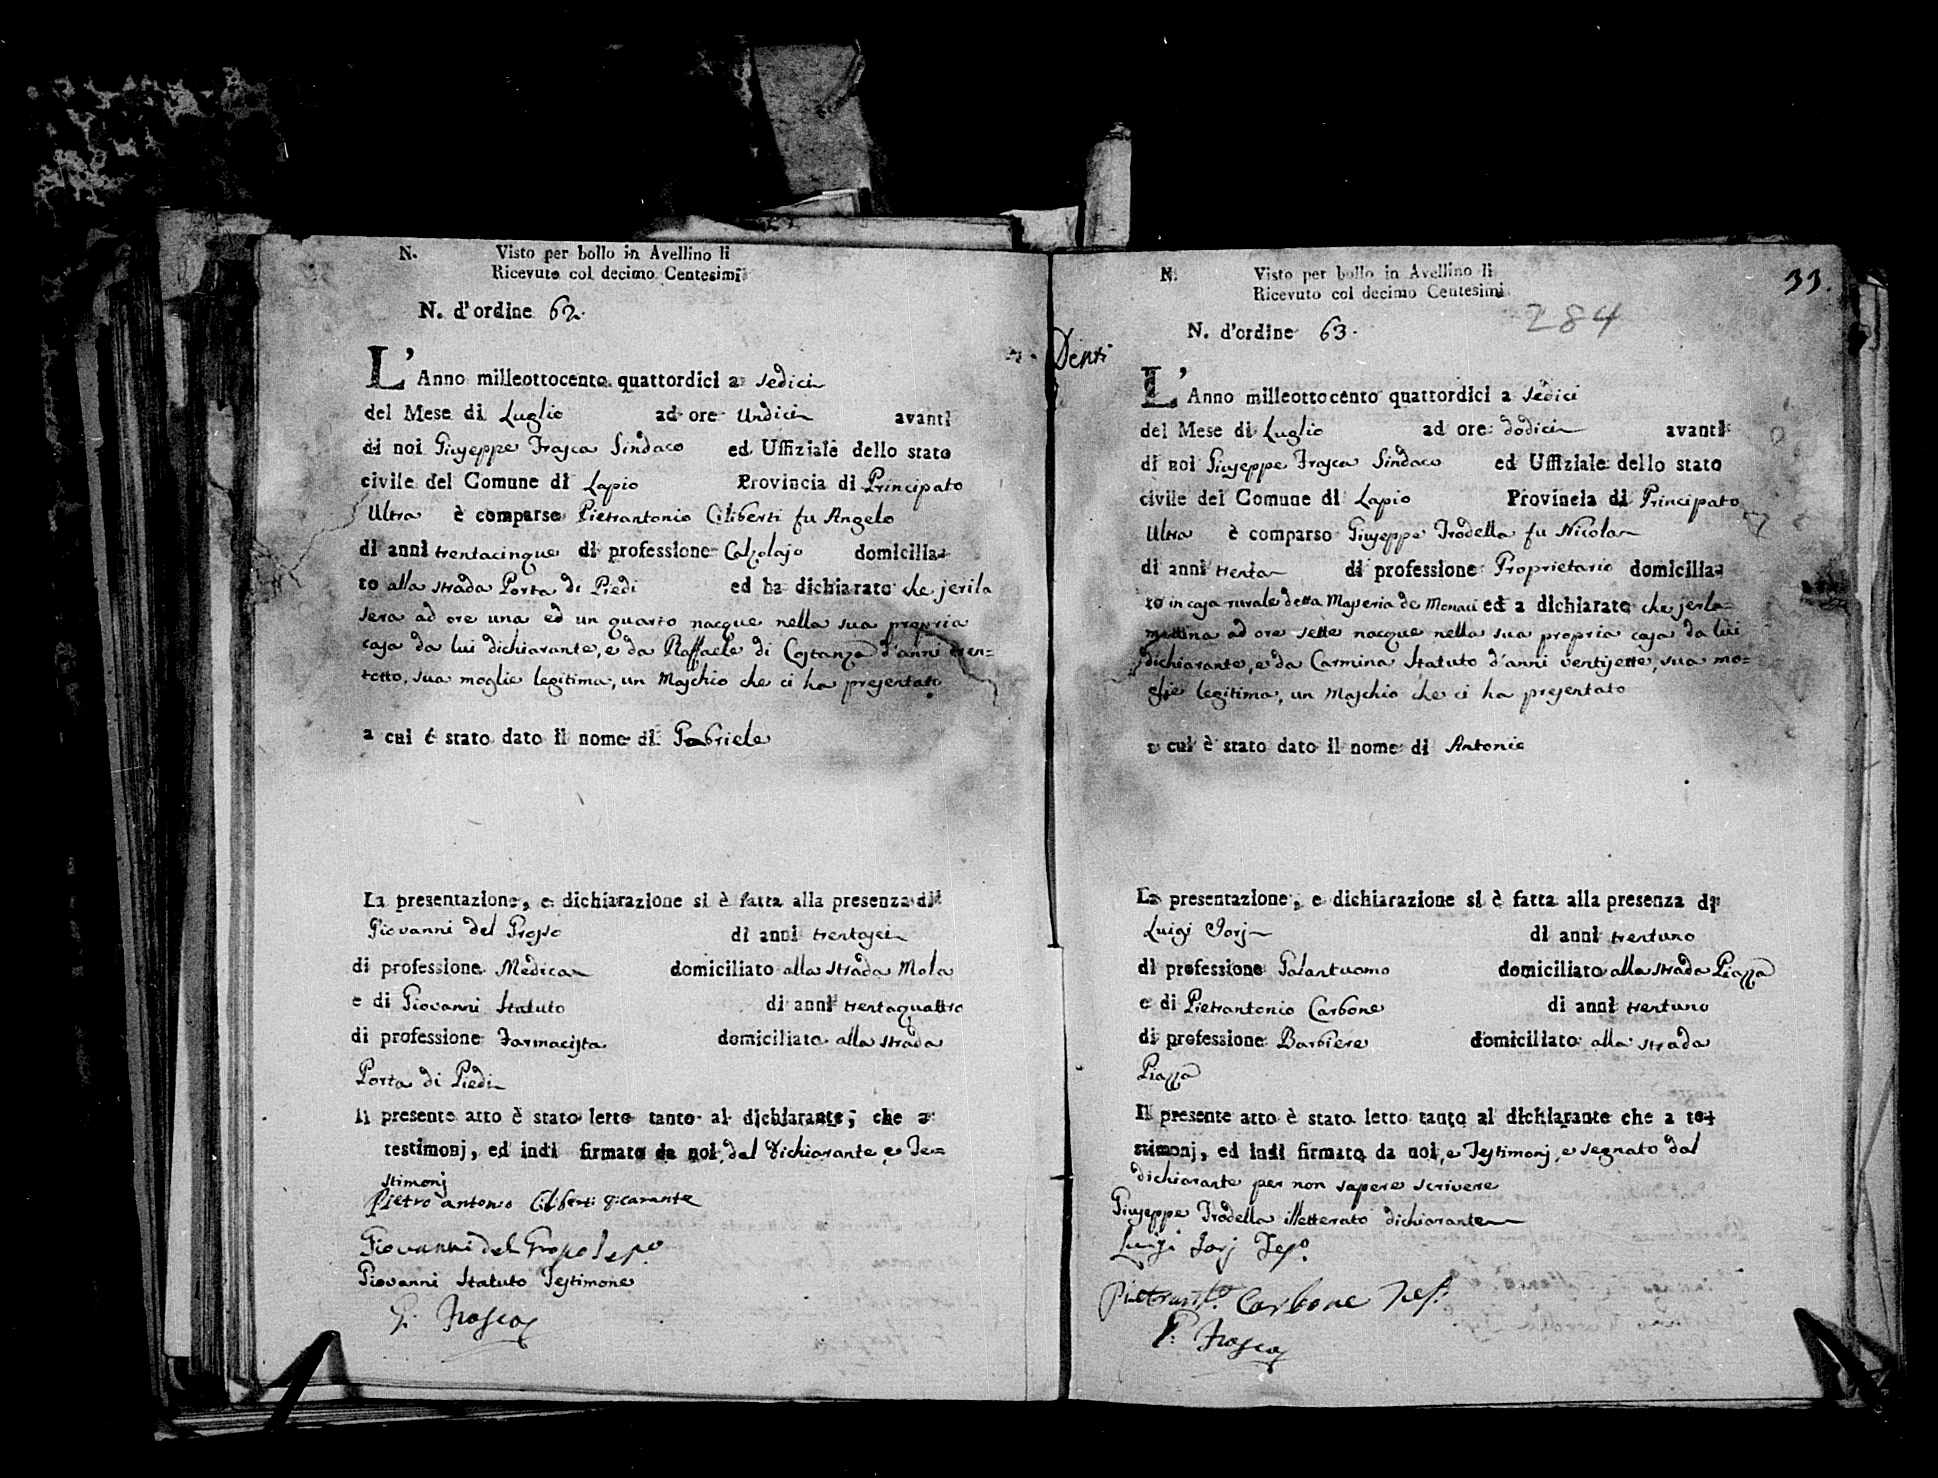 N. Visto per bollo in Avellino li
Ricevuto col decimo Centesimi
N. d'ordine 62.
L'Anno milleottocento quattordici a sedici
del Mese di Luglio ad ore undici avanti
di noi Giuseppe Frasca Sindaco ed Uffiziale dello stato
civile del Comune di Lapio Provincia di Principato
Ultra è comparso Pietrantonio Ciliberti fu Angelo
di anni trentacinque di professione Calzolajo domicilia-
to alla strada Porta di Piedi ed ha dichiarato che jerila
sera ad ore una ed un quarto nacque nella sua propria
casa da lui dichiarante, e da Raffaele di Costanza d'anni tren=
totto, sua moglie legitima, un Maschio che ci ha presentato
a cui è stato dato il nome di Gabriele
La presentazione, e dichiarazione si è fatta alla presenza di
Giovanni del Grosso di anni trentasei
di professione Medica domiciliato alla strada Mola
e di Giovanni Statuto di anni trentaquattro
di professione Farmacista domiciliato alla strada
Porta di Piedi
Il presente atto è stato letto tanto al dichiarante, che a
testimonj, ed indi firmato da noi, dal dichiarante e Te=
stimonj
Pietro antonio Ciliberti
Giovanni del Grosso
Giovanni Statuto Testimone
G. Frasca
Denti
33.
N. Visto per bollo in Avellino li
Ricevuto col decimo Centesimi
284
N. d'ordine 63.
L'Anno milleottocento quattordici a sedici
del Mese di Luglio ad ore dodici avanti
di noi Giuseppe Frasca Sindaco ed Uffiziale dello stato
civile del Comune di Lapio Provincia di Principato
Ultra è comparso Giuseppe Trodella fu Nicola
di anni trenta di professione Proprietario domicilia-
to in casa rurale detta Masseria de Monaci ed a dichiarato che jerla=
mattina ad ore sette nacque nella sua propria casa da lui
dichiarante, e da Carmina Statuto d'anni ventisette, sua mo=
glie legitima, un Maschio che ci ha presentato
a cui è stato dato il nome di Antonio
La presentazione, e dichiarazione si è fatta alla presenza di
Luigi Jorj di anni trentuno
di professione Galantuomo domiciliato alla strada Piazza
e di Pietrantonio Carbone di anni trentuno
di professione Barbiere domiciliato alla strada
Piazza
Il presente atto è stato letto tanto al dichiarante che a te-
stimonj, ed indi firmato da noi, e Testimonj, e segnato dal
dichiarante per non sapere scrivere
Giuseppe Trodella illetterato dichiarante
Luigi Jorj Teso.
Pietranto. Carbone Tes.
G. Frasca